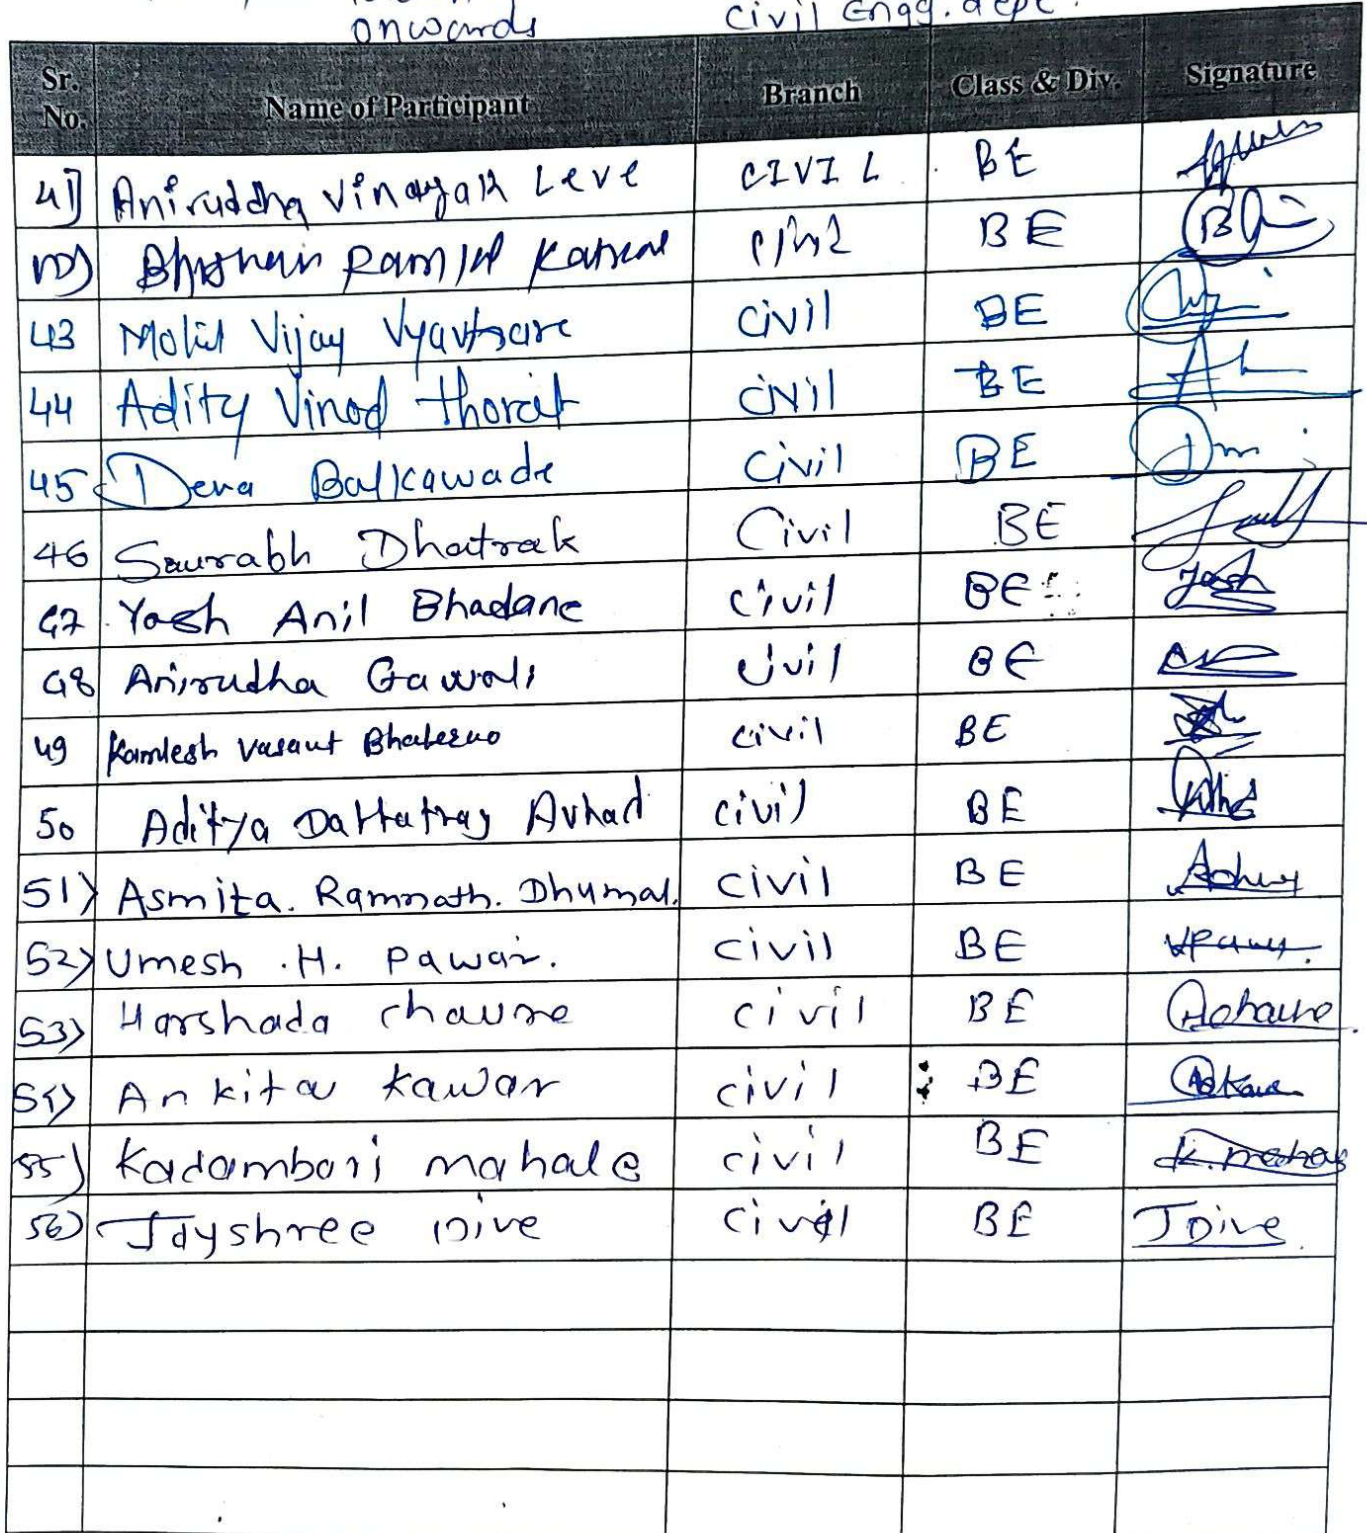 onwards civil Engg. dept.
Sr. No. Name of Participant Branch Class & Div. Signature
41] Aniruddha Vinayak Leve CIVIL BE
BE
43 Mohit Vijay Vyavhare Civil BE
44 Adity Vinod thorat Civil BE
45 Deva Balkawade Civil BE
46 Saurabh Dhatrak Civil BE
47 Yash Anil Bhadane Civil BE Yash
48 Anirudha Gawali Civil BE
49 Kamlesh Vasant Bhalerao civil BE
50 Aditya Dattatray Avhad civil BE
51) Asmita. Ramnath. Dhumal. civil BE
52) Umesh .H. Pawar. civil BE
53) Harshada chaure civil BE
54) Ankita Kawar civil BE
55) Kadambari mahale civil BE
56) Jayshree Dive civil BE JDive.